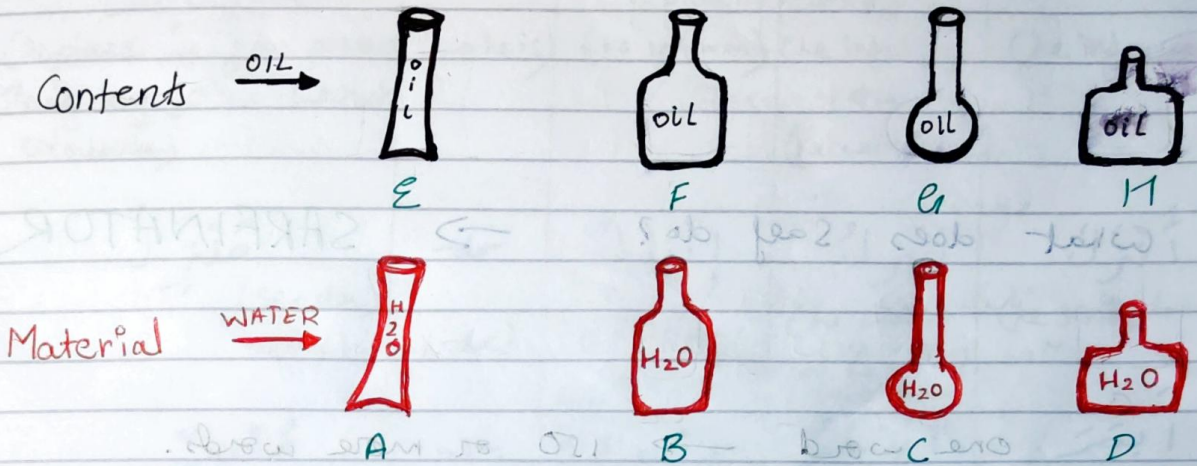 Contents OIL
OiL OiL OiL OiL
E F G H
Material WATER
H2O H2O H2O H2O
A B C D